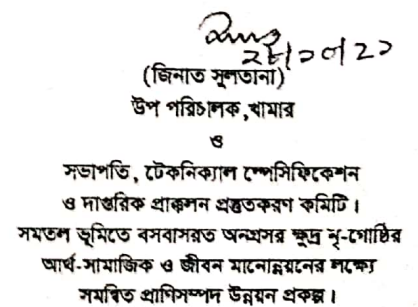 ২৪/১০/২১
(জিনাত সুলতানা)
উপ পরিচালক,খামার
ও
সভাপতি, টেকনিক্যাল স্পেসিফিকেশন
ও দাপ্তরিক প্রাক্কলন প্রস্তুতকরণ কমিটি।
সমতল ভূমিতে বসবাসরত অনগ্রসর ক্ষুদ্র নৃ-গোষ্ঠির
আর্থ-সামাজিক ও জীবন মানোন্নয়নের লক্ষ্যে
সমন্বিত প্রাণিসম্পদ উন্নয়ন প্রকল্প।